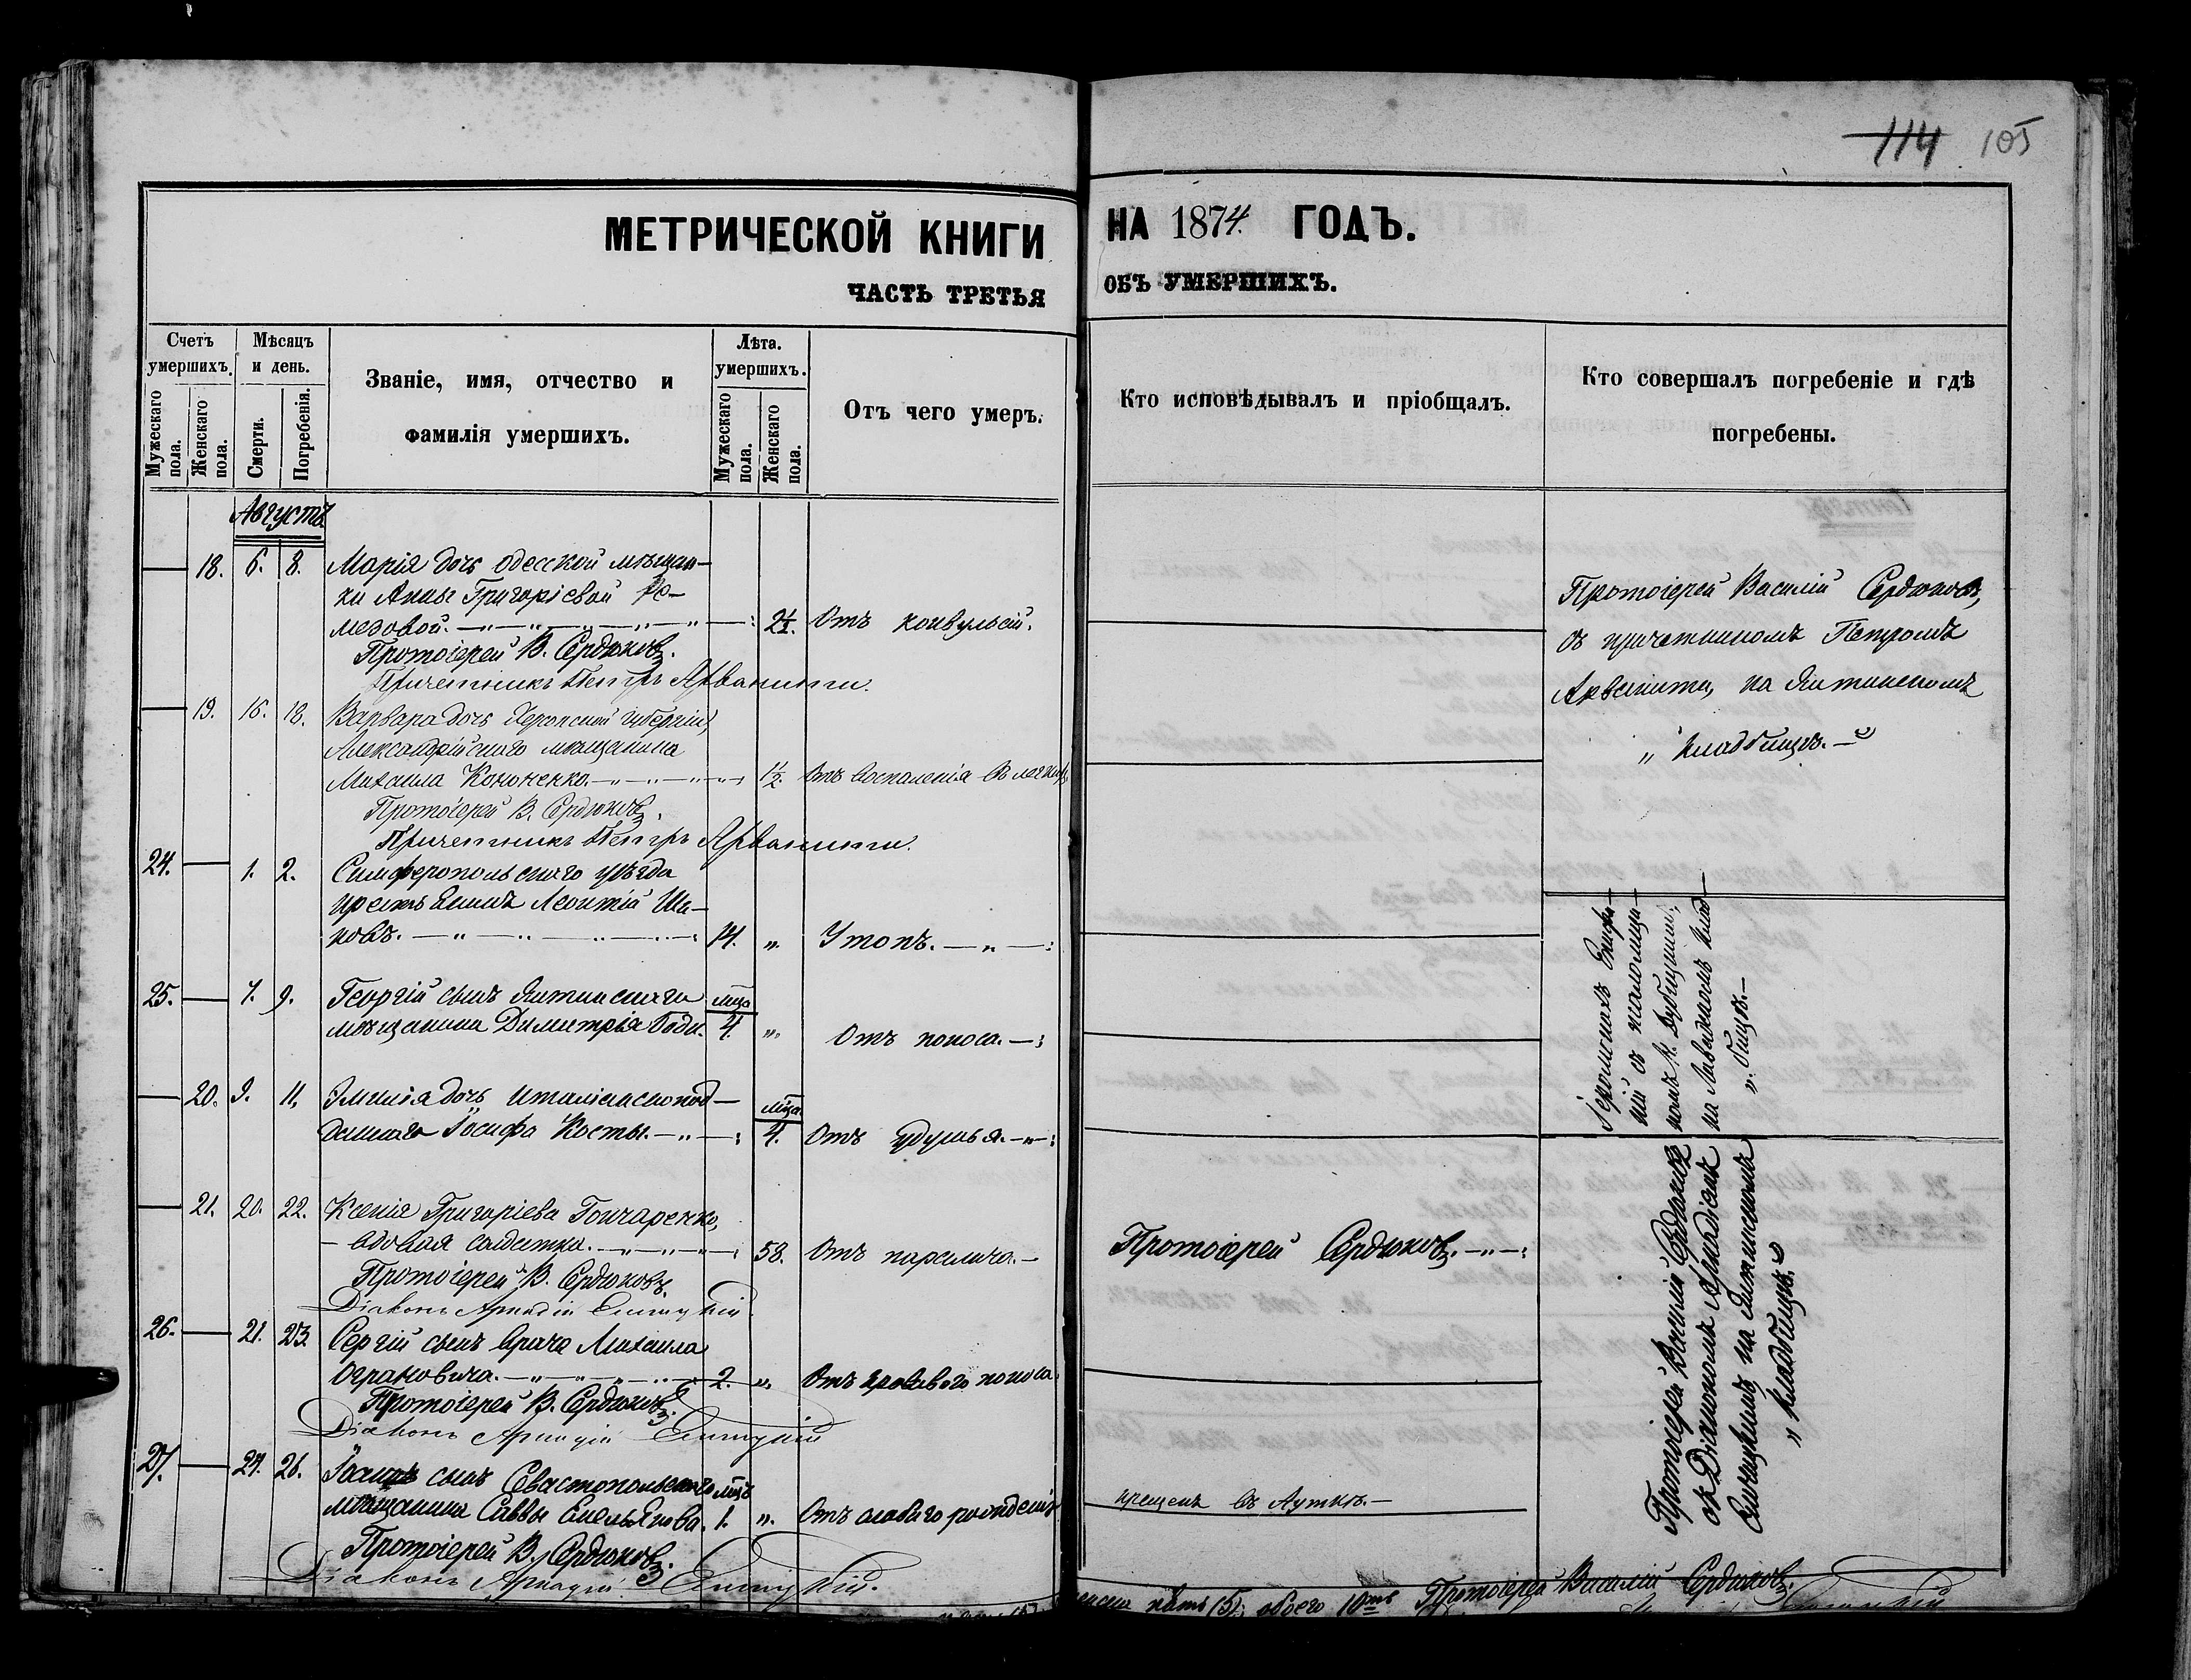 114 105
МЕТРИЧЕСКОЙ КНИГИ НА 1874. ГОДЪ.
ЧАСТЬ ТРЕТЬЯ ОБЪ УМЕРШИХЪ.
Счетъ умершихъ.
Мужескаго пола.
Женскаго пола.
Мѣсяцъ и день.
Смерти.
Погребенія.
Званіе, имя, отчество и
фамилія умершихъ.
Лѣта. умершихъ.
Мужескаго пола.
Женскаго пола.
Отъ чего умеръ.
Кто исповѣдывалъ и пріобщалъ.
Кто совершалъ погребеніе и гдѣ
погребены.
Августъ
18. 6. 8. Марія дочь одесской мѣщан-
ки Анны Григоріевой
медовой. Отъ конвульсій.
Протоіерей В. Сердюковъ.
Причетникъ Петръ Арванити.
19. 16. 18. Варвара дочь Херсонской губерніи,
Александрійскаго мѣщанина
Михаила Кононенко. 1½. Отъ воспаленія въ легкихъ
Протоіерей В. Сердюковъ.
Причетникъ Петръ Арванити.
Протоіерей Василій Сердюковъ,
съ причетникомъ Петромъ
Арванити, на Ялтинскомъ
" кладбищѣ. "
24. 1. 2. Симферопольскаго уѣзда
Леонтій
ковъ. 14. " Утопъ. "
25. 7. 9. Георгій сынъ Ялтинскаго мца
мѣщанина Димитрія 4. " Отъ поноса.
20. 9. 11. Эмилія дочь Италіанскопод- мца
даннаго Іосифа Косты. 4. Отъ удушья.
Іеромонахъ
ній съ
номъ
на Ливадскомъ клад-
" бищѣ.
21. 20. 22. Ксенія Григоріева Гончаренко,
вдовая солдатка. 58. Отъ паралича.
Протоіерей Сердюковъ.
Протоіерей В. Сердюковъ.
Діаконъ Аркадій
26. 21. 23. Сергій сынъ врача Михаила
Ограновича. 2. " Отъ кроваваго поноса.
Протоіерей В. Сердюковъ.
Діаконъ Аркадій
27. 24. 26. сынъ Севастопольскаго мцъ
мѣщанина Саввы Емельянова. 1. " Отъ слабаго рожденія
крещенъ въ Ауткѣ.
Протоіерей В. Сердюковъ.
Діаконъ Аркадій
Протоіерей Василій Сердюковъ
съ Діакономъ Аркадіемъ
на Ялтинскомъ
" кладбищѣ. "
пять (5), обоего 10ть Протоіерей Василій Сердюковъ.